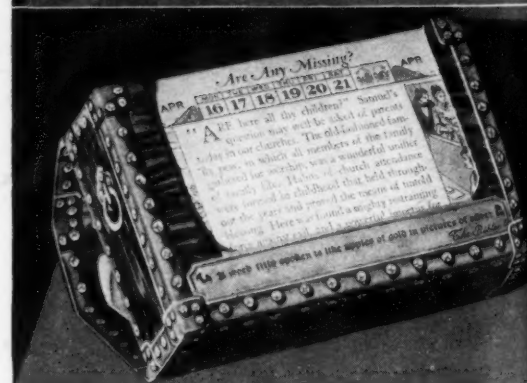 Are Any Missing?
APR
MON TUE WED THU FRI SAT
APR
16 17 18 19 20 21
"ARE here all thy children?" Samuel's
question may well be asked of parents
today in our churches. The old-fashioned fam-
ily pew, in which all members of the family
gathered for worship, was a wonderful
of family life. Habits of church attendance
were formed in childhood that held through-
out the years and proved the means of untold
blessing. Here was found a mighty restraining
and a powerful
A word fitly spoken is like apples of gold in pictures of silver
The Bible